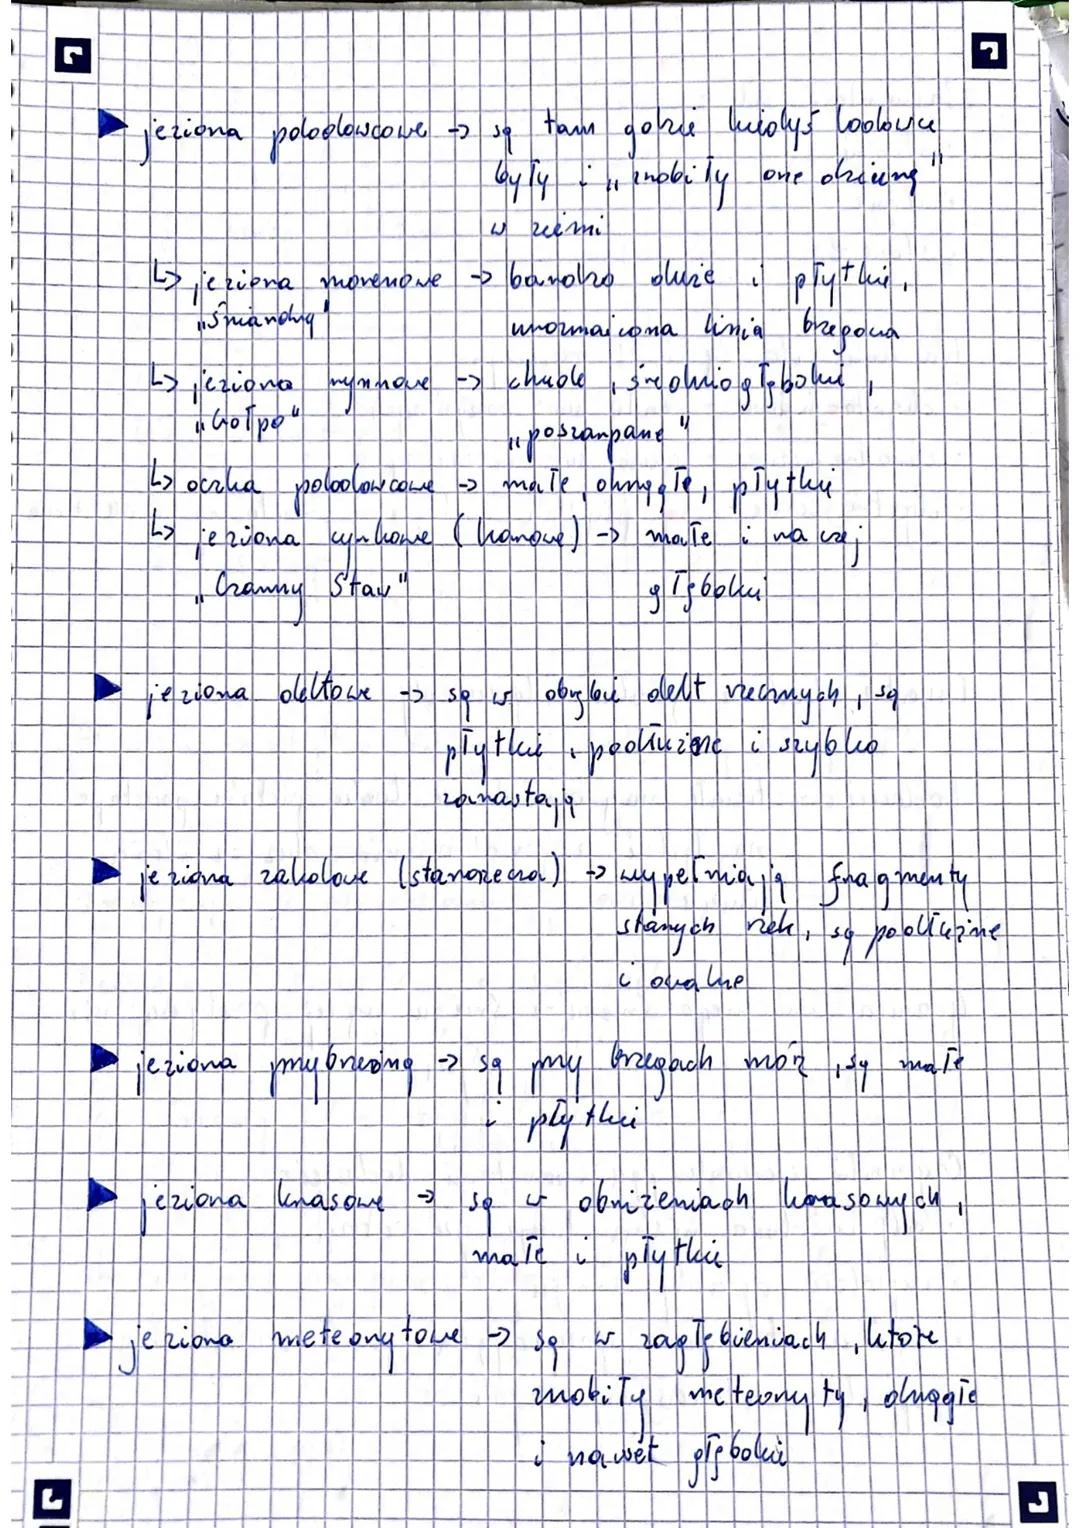 jeziora polodowcowe -> są tam gdzie kiedyś lodowce
były i „zrobiły one dziurę"
w ziemi
↳ jeziora morenowe -> bardzo duże i płytkie,
„Śniardwy" urozmaicona linia brzegowa
↳ jeziora rynnowe -> chude, średnio głębokie,
„Gołpo" „poszarpane"
↳ oczka polodowcowe -> małe, okrągłe, płytkie
↳ jeziora cyrkowe (karowe) -> małe i raczej
„Czarny Staw" głębokie
jeziora deltowe -> są w obrębie delt rzecznych, są
płytkie, podłużne i szybko
zarastają
jeziora zakolowe (starorzecza) -> wypełniają fragmenty
starych rzek, są podłużne
i owalne
jeziora przybrzeżne -> są przy brzegach mórz, są małe
i płytkie
jeziora krasowe -> są w obniżeniach krasowych,
małe i płytkie
jeziora meteorytowe -> są w zagłębieniach, które
zrobiły meteoryty, okrągłe
i nawet głębokie